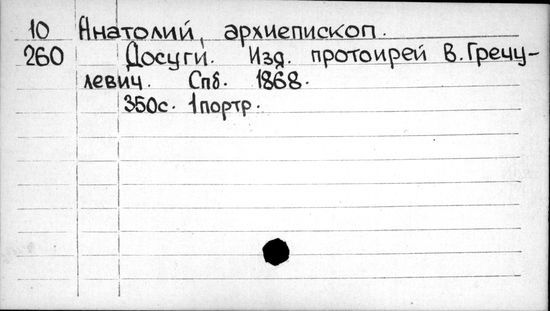 10 Анатолий, архиепископ.
260 Досуги. Изд. протоирей В. Гречу-
левич. Спб. 1868.
350с. 1портр.